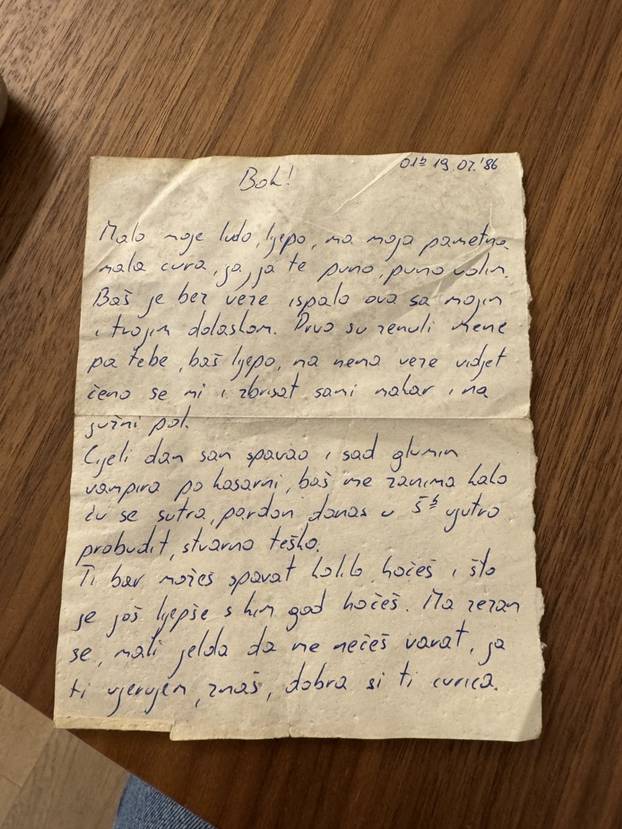 01h 19.07.'86
Bok!
Malo moje ludo, lijepo, ma moja pametna
mala cura, ja, ja te puno, puno volim.
Baš je bez veze ispalo ova sa mojim
i tvojim dolaskom. Prvo su zenuli mene
pa tebe, baš lijepo, ma nema veze vidjet
ćemo se mi i zbrisat sami makar i na
južni pol.
Cijeli dan sam spavao i sad glumim
vampira po kasarni, baš me zanima kako
ću se sutra, pardon danas u 5h ujutro
probudit, stvarno teško.
Ti bar možeš spavat koliko hoćeš i što
je još ljepše s kim god hoćeš. Ma zezam
se, mali jelda da me nećeš varat, ja
ti vjerujem, znaš, dobra si ti curica.